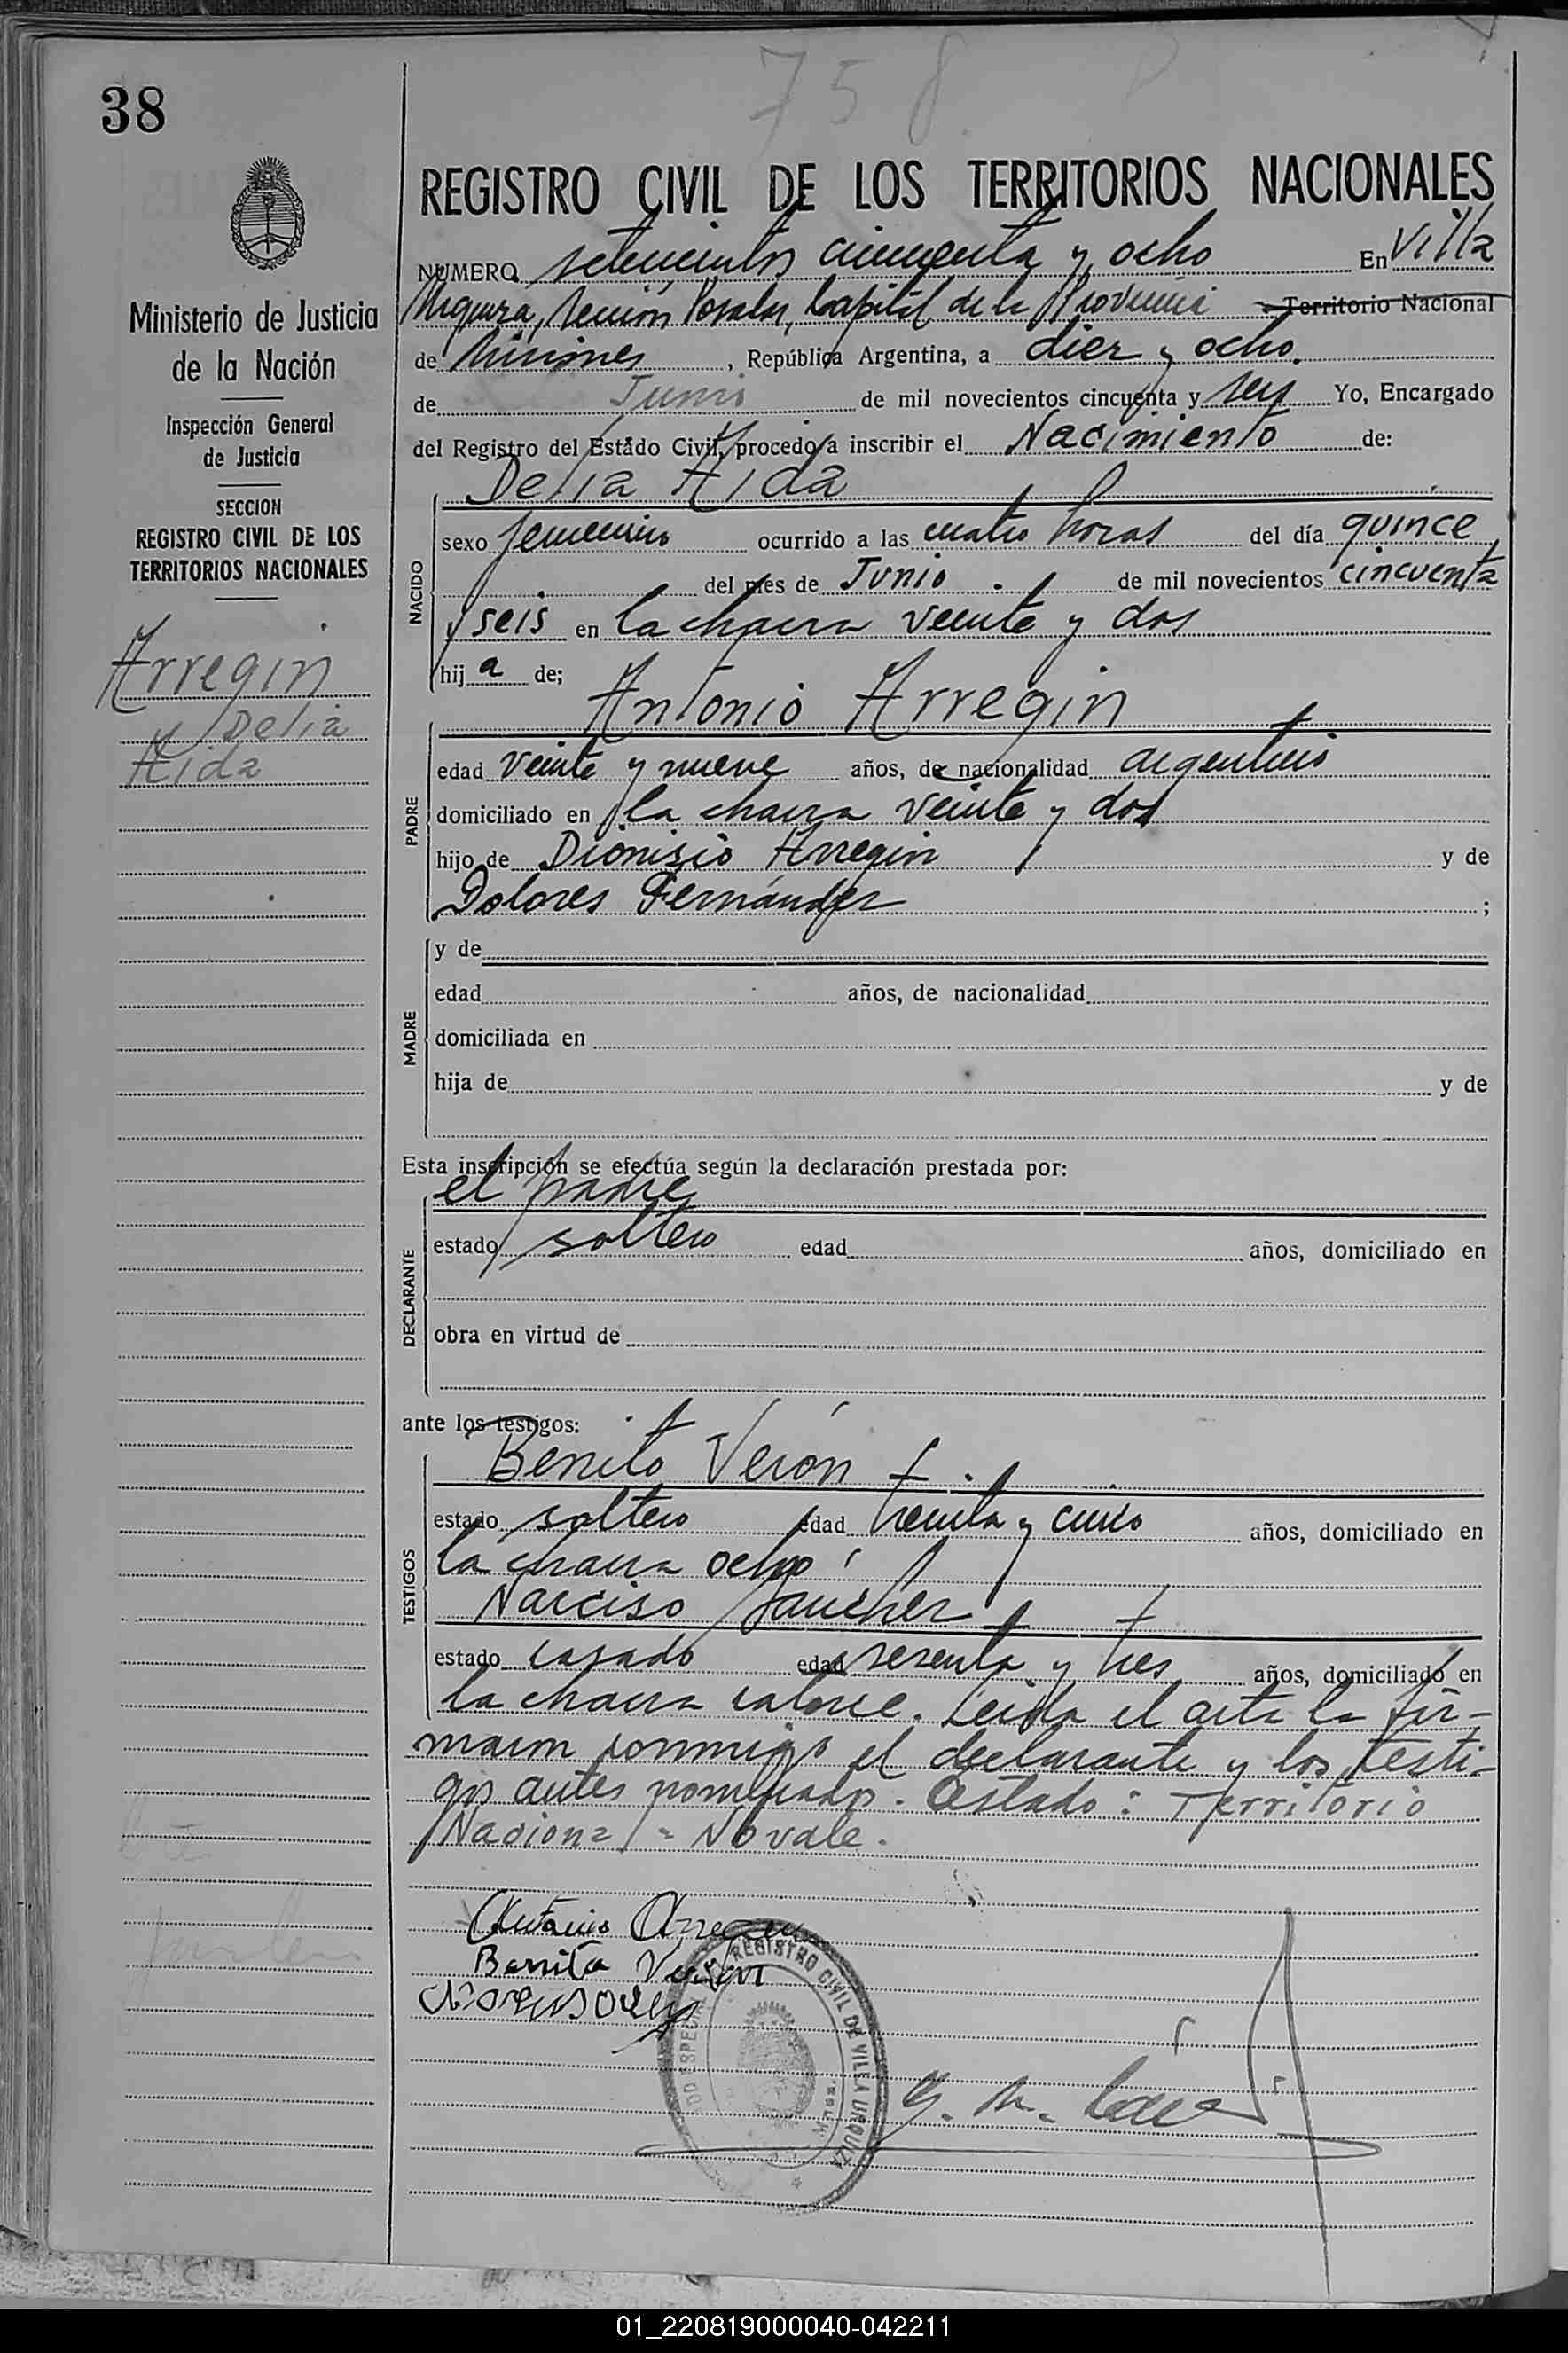 758
38
REGISTRO CIVIL DE LOS TERRITORIOS NACIONALES
NUMERO setecientos cincuenta y ocho En Villa
Urquiza, Sección Posadas, Capital de la Provincia Territorio Nacional
de Misiones, República Argentina, a diez y ocho
de Junio de mil novecientos cincuenta y seis Yo, Encargado
del Registro del Estado Civil, procedo a inscribir el Nacimiento de:
Delia Aida
NACIDO
sexo femenino ocurrido a las cuatro horas del día quince
del mes de Junio de mil novecientos cincuenta
y seis en la chacra veinte y dos
hija de;
Antonio Arregin
PADRE
edad veinte y nueve años, de nacionalidad argentino
domiciliado en la chacra veinte y dos
hijo de Dionisio Arregin y de
Dolores Fernández ;
MADRE
y de
edad años, de nacionalidad
domiciliada en
hija de y de
Esta inscripción se efectúa según la declaración prestada por:
el padre
DECLARANTE
estado soltero edad años, domiciliado en
obra en virtud de
ante los testigos:
Benito Verón
TESTIGOS
estado soltero edad treinta y cinco años, domiciliado en
la chacra ocho
Narciso Sanchez
estado casado edad sesenta y tres años, domiciliado en
la chacra catorce. Leida el acta la fir-
maron conmigo el declarante y los testi-
gos antes nombrados. Testado: Territorio
Nacional = No vale.
Antonio Arregin
Benito Verón
REGISTRO CIVIL DE VILLA URQUIZA
Ministerio de Justicia
de la Nación
Inspección General
de Justicia
SECCION
REGISTRO CIVIL DE LOS
TERRITORIOS NACIONALES
Arregin
Delia
Aida
01_220819000040-042211